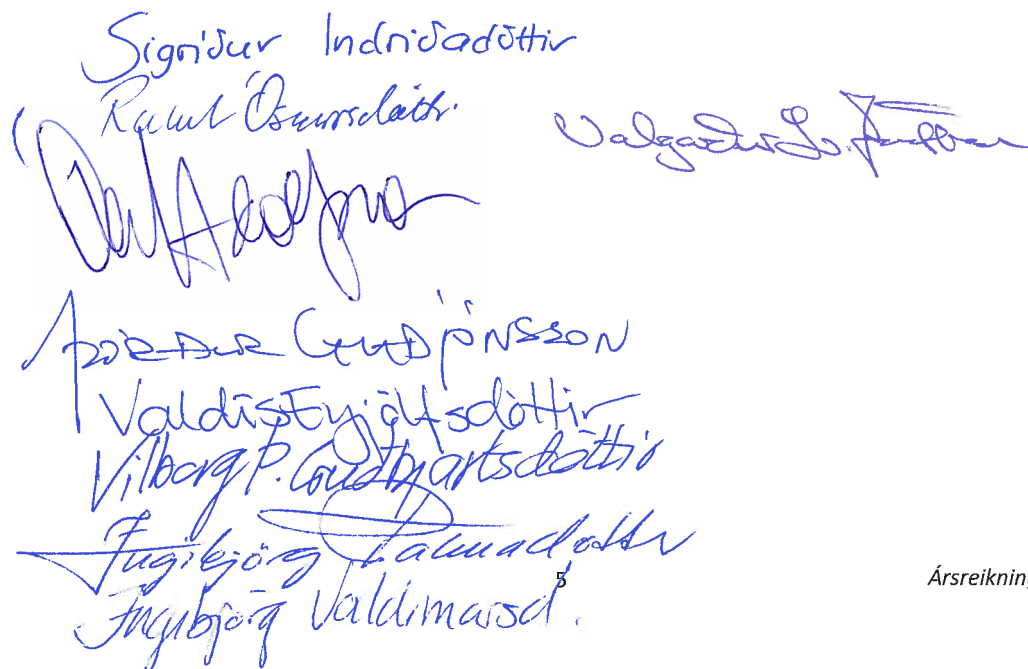 Sigríður Indriðadóttir
Rakel Óskarsdóttir
Valgarður L. Jónsson
Þórður Guðjónsson
Valdís Eyjólfsdóttir
Vilborg Þ. Guðbjartsdóttir
Ingibjörg Pálmadóttir
5
Ársreikning
Ingibjörg Valdimarsd.